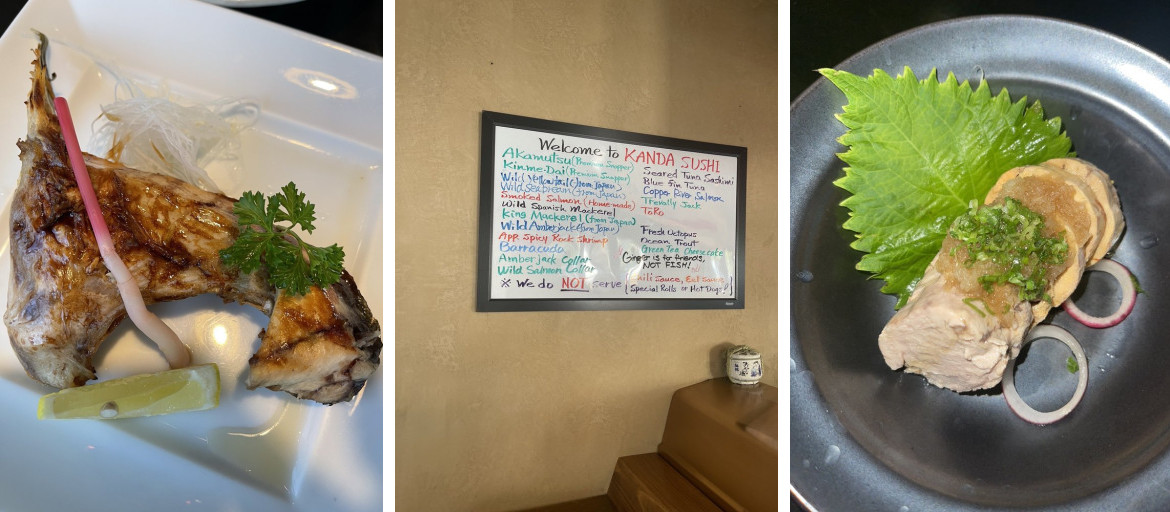 Welcome to KANDA SUSHI
Akamutsu (Premium Snapper)
Kinme-Dai (Premium Snapper)
Wild Yellowtail (from Japan)
Wild Seabream (from Japan)
Smoked Salmon (Home-made)
Wild Spanish Mackerel
King Mackerel (from Japan)
Wild Amberjack (from Japan)
App. Spicy Rock Shrimp
Barracuda
Amberjack Collar
Wild Salmon Collar
※ We do NOT serve
Seared Tuna Sashimi
Blue fin Tuna
Copper River Salmon
Trevally Jack
ToRo
Fresh Octopus
Ocean Trout
Green Tea Cheesecake
Ginger is for friends,
NOT FISH!
Sauce, Eel Sauce
Special Rolls or Hot Dogs